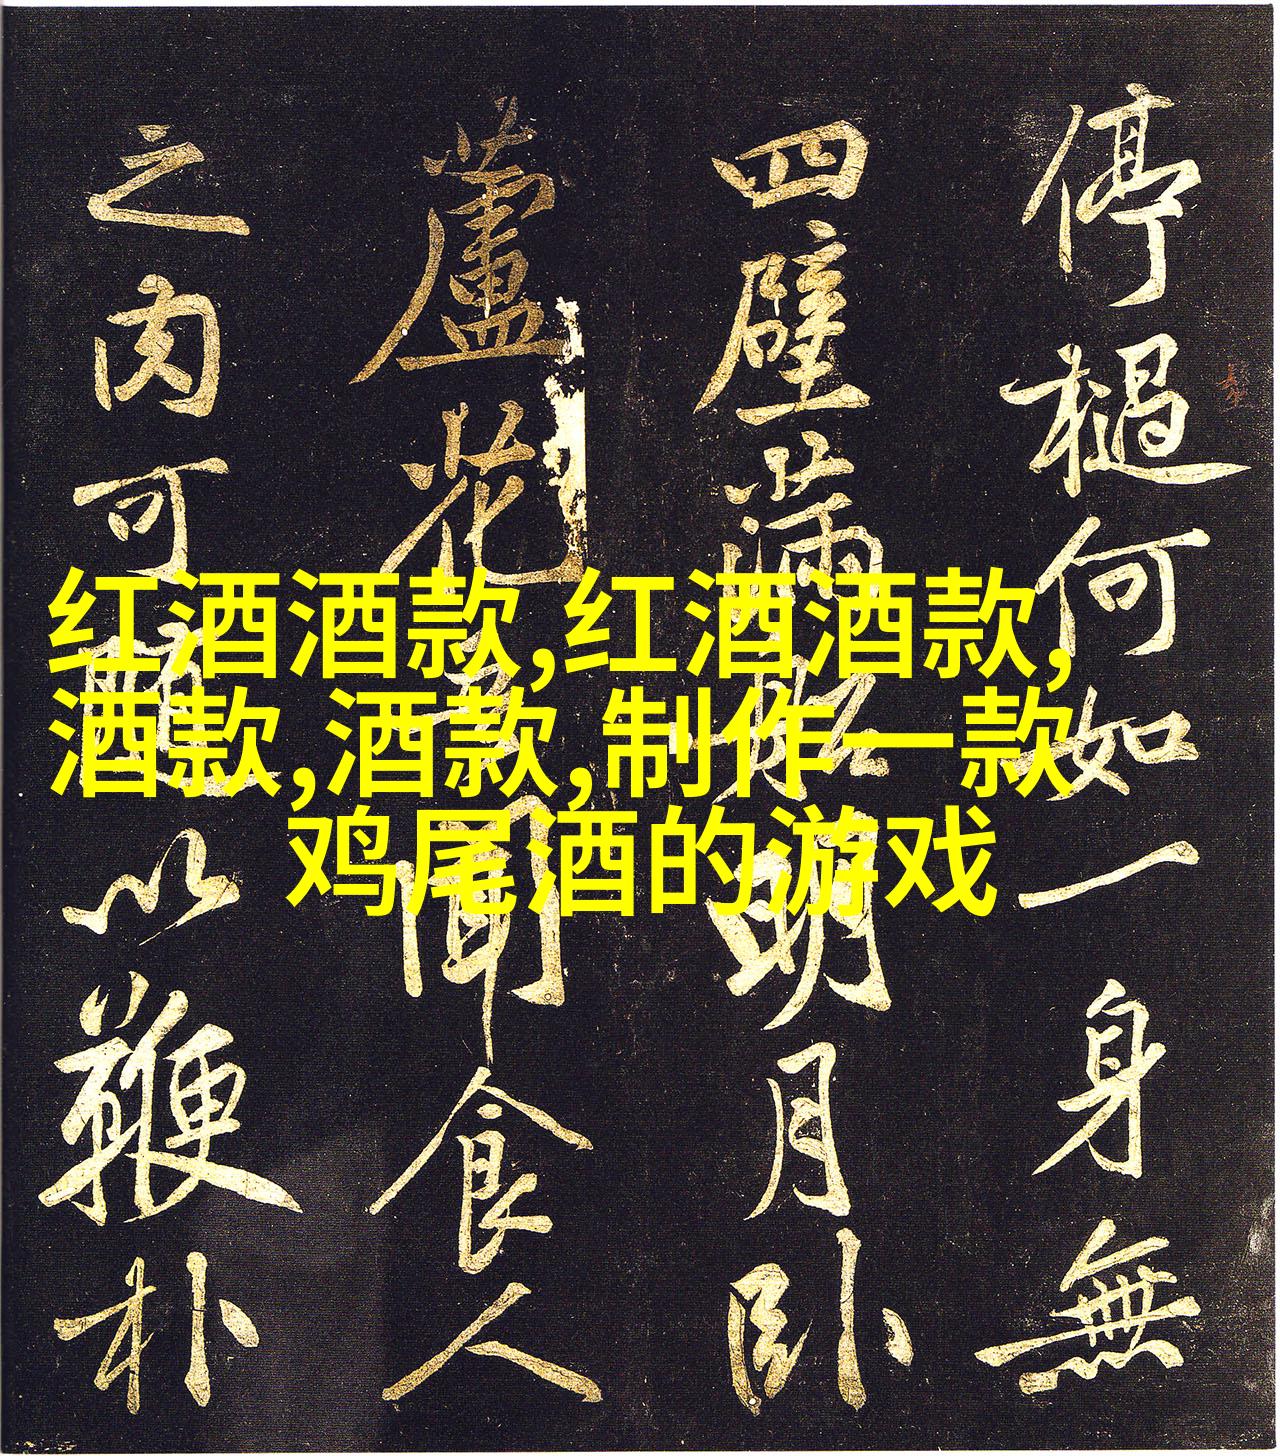 停檛何如一身無
四壁滿船明月卧
蘆花吾聞食人
之肉可隨以鞭朴
红酒酒款,红酒酒款,
酒款,酒款,制作一款
鸡尾酒的游戏